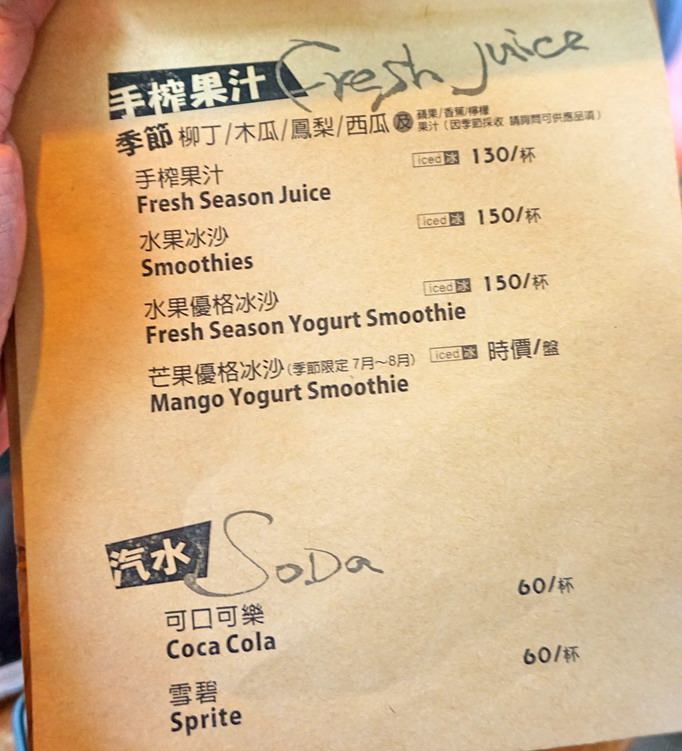 手榨果汁 Fresh Juice
季節 柳丁/木瓜/鳳梨/西瓜 及 蘋果/香蕉/檸檬
果汁(因季節採收 請詢問可供應品項)
手榨果汁 iced 冰 130/杯
Fresh Season Juice
水果冰沙 iced 冰 150/杯
Smoothies
水果優格冰沙 iced 冰 150/杯
Fresh Season Yogurt Smoothie
芒果優格冰沙(季節限定 7月~8月) iced 冰 時價/盤
Mango Yogurt Smoothie
汽水 SoDa
可口可樂 60/杯
Coca Cola
雪碧 60/杯
Sprite